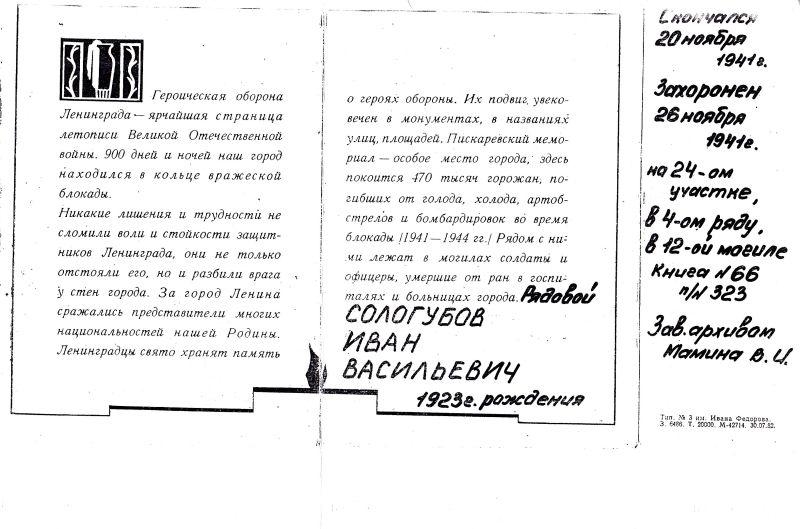 Героическая оборона
Ленинграда — ярчайшая страница
летописи Великой Отечественной
войны. 900 дней и ночей наш город
находился в кольце вражеской
блокады.
Никакие лишения и трудности не
сломили воли и стойкости защит-
ников Ленинграда, они не только
отстояли его, но и разбили врага
у стен города. За город Ленина
сражались представители многих
национальностей нашей Родины.
Ленинградцы свято хранят память
о героях обороны. Их подвиг увеко-
вечен в монументах, в названиях
улиц, площадей. Пискаревский мемо-
риал — особое место города, здесь
покоится 470 тысяч горожан, по-
гибших от голода, холода, артоб-
стрелов и бомбардировок во время
блокады /1941—1944 гг./ Рядом с ни-
ми лежат в могилах солдаты и
офицеры, умершие от ран в госпи-
талях и больницах города. Рядовой
СОЛОГУБОВ
ИВАН
ВАСИЛЬЕВИЧ
1923г. рождения
Скончался
20 ноября
1941г.
Захоронен
26 ноября
1941г.
на 24-ом
участке,
в 4-ом ряду,
в 12-ой могиле
Книга №66
п/№ 323
Зав. архивом
Мамина В. И.
Тип. № 3 им. Ивана Федорова.
З. 6486. Т. 20000. М-42714. 30.07.82.